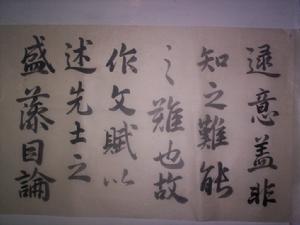 逮意盖非
知之難能
之難也故
作文賦以
述先士之
盛藻因論